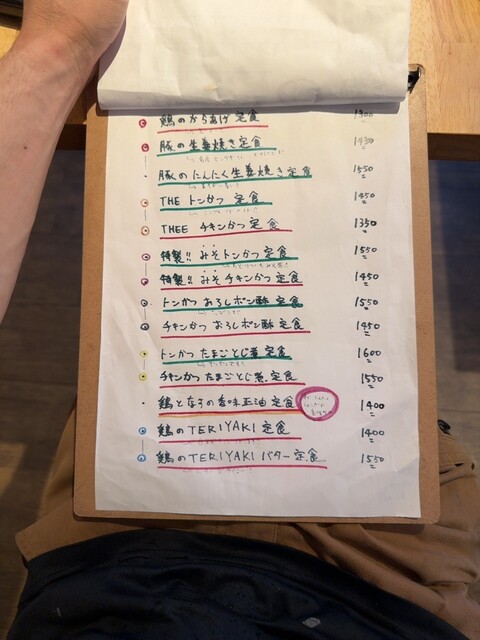 鶏のからあげ定食 1300
豚の生姜焼き定食 1430
豚のにんにく生姜焼き定食 1550
THE トンかつ 定食 1450
THEE チキンかつ定食 1350
特製!! みそトンかつ定食 1550
特製!! みそチキンかつ定食 1450
トンかつ おろしポン酢 定食 1550
チキンかつ おろしポン酢 定食 1450
トンかつ たまごとじ煮 定食 1600
チキンかつ たまごとじ煮 定食 1550
鶏となすの香味正油 定食 1400
鶏のTERIYAKI 定食 1400
鶏のTERIYAKI バター 定食 1550